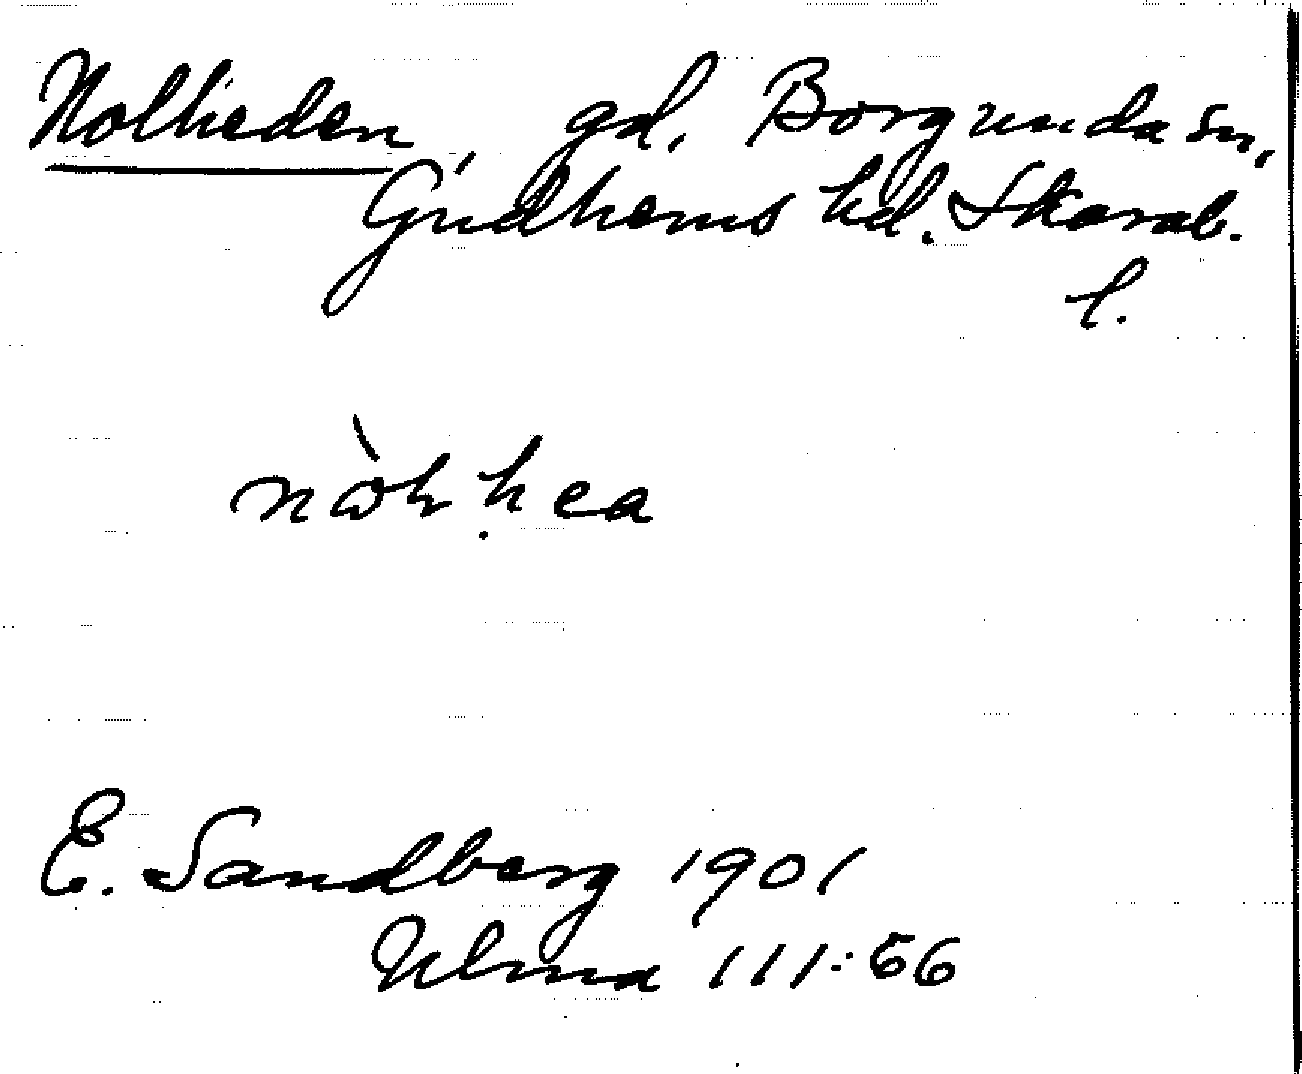 Nolheden, gd, Borgunda sn,
Gudhems hd. Skarab.
l.
E. Sandberg 1901
Ulma 111:56